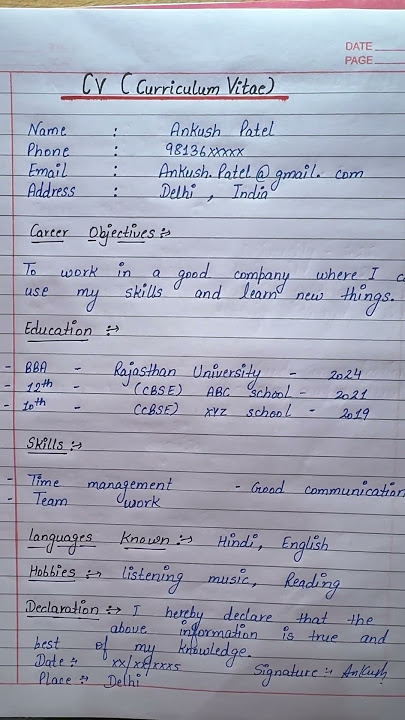 DATE
PAGE
CV (Curriculum Vitae)
Name : Ankush Patel
Phone : 98136xxxxx
Email : Ankush.Patel@gmail.com
Address : Delhi, India
Career Objectives :→
To work in a good company where I c
use my skills and learn new things.
Education :→
- BBA - Rajasthan University - 2024
- 12th - (CBSE) ABC school - 2021
- 10th - (CBSE) XYZ school - 2019
Skills :→
- Time management - Good communication
- Team work
Languages Known :→ Hindi, English
Hobbies :→ listening music, Reading
Declaration :→ I hereby declare that the
above information is true and
best of my knowledge.
Date :→ xx/xx/xxxx Signature :→ Ankush
Place :→ Delhi